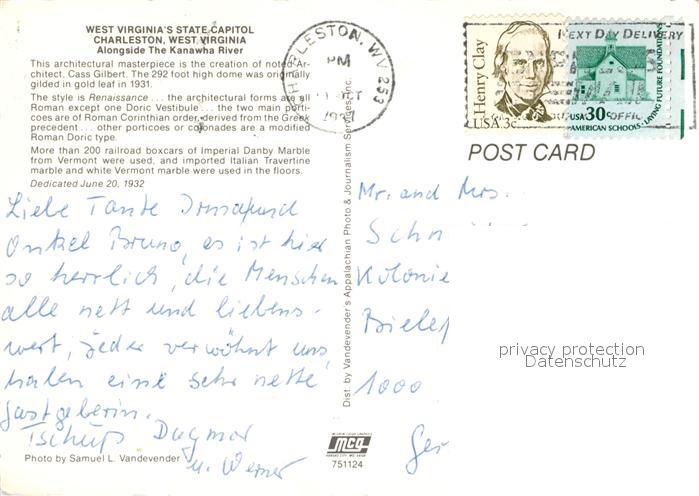 WEST VIRGINIA'S STATE CAPITOL
CHARLESTON, WEST VIRGINIA
Alongside The Kanawha River
This architectural masterpiece is the creation of noted Ar-
chitect, Cass Gilbert. The 292 foot high dome was originally
gilded in gold leaf in 1931.
The style is Renaissance . . . the architectural forms are all
Roman except one Doric Vestibule . . . the two main porti-
coes are of Roman Corinthian order derived from the Greek
precedent . . . other porticoes or colonades are a modified
Roman Doric type.
More than 200 railroad boxcars of Imperial Danby Marble
from Vermont were used, and imported Italian Travertine
marble and white Vermont marble were used in the floors.
Dedicated June 20, 1932
Liebe Tante Irma und
Onkel Bruno, es ist hier
so herrlich, die Menschen
alle nett und liebens-
wert, jeder verwöhnt uns,
haben eine sehr nette
Gastgeberin.
Tschüß Dagmar
u. Werner
Photo by Samuel L. Vandevender
Dist. by Vandevender's Appalachian Photo & Journalism Services, Inc.
mcg
751124
CHARLESTON, WV 253
PM
OCT
Henry Clay
USA 3c
NEXT DAY DELIVERY
OFFIC
USA 30c
AMERICAN SCHOOLS · LIVING FUTURE FOUNDATIONS
POST CARD
Mr. and Mrs.
Schn
Kolonie
Bielef
1000
Ger
privacy protection
Datenschutz